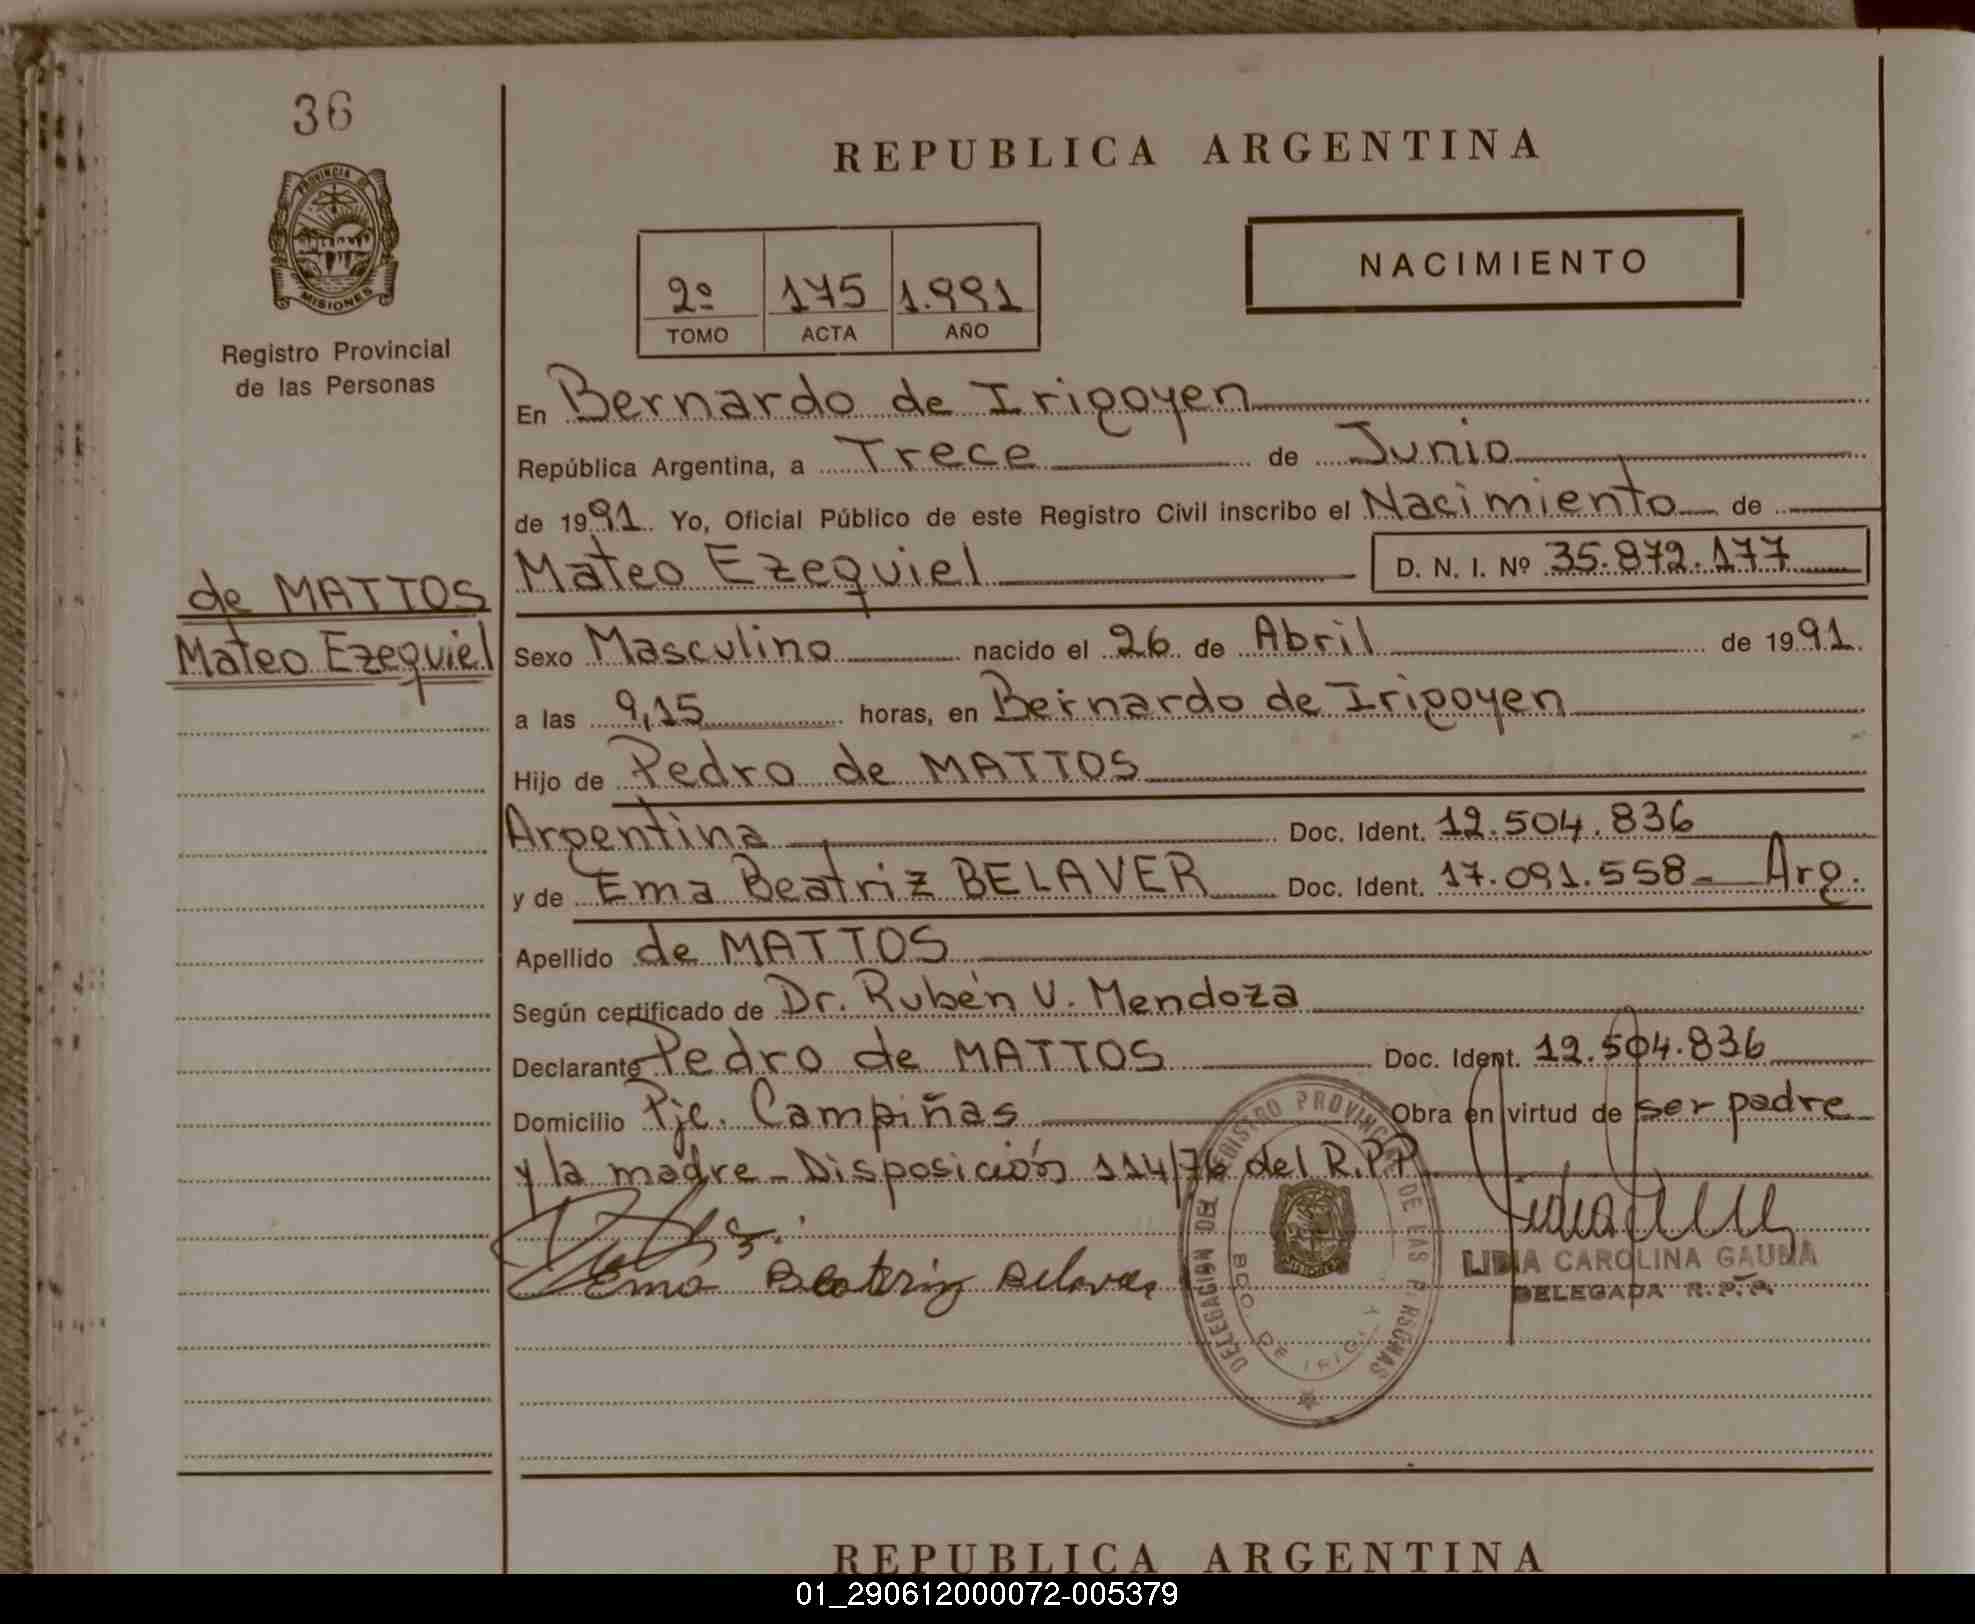 36
PROVINCIA DE
MISIONES
Registro Provincial
de las Personas
REPUBLICA ARGENTINA
NACIMIENTO
2º 175 1.991
TOMO ACTA AÑO
En Bernardo de Irigoyen
República Argentina, a Trece de Junio
de 1991. Yo, Oficial Público de este Registro Civil inscribo el Nacimiento de
Mateo Ezequiel D. N. I. Nº 35.872.177
de MATTOS
Mateo Ezequiel
Sexo Masculino nacido el 26 de Abril de 1991.
a las 9,15 horas, en Bernardo de Irigoyen
Hijo de Pedro de MATTOS
Argentina Doc. Ident. 12.504.836
y de Ema Beatriz BELAVER Doc. Ident. 17.091.558 - Arg.
Apellido de MATTOS
Según certificado de Dr. Rubén V. Mendoza
Declarante Pedro de MATTOS Doc. Ident. 12.504.836
Domicilio Pje. Campiñas Obra en virtud de ser padre
y la madre - Disposición 114/76 del R.P.P.
Ema Beatriz Belaver
DELEGACION DEL REGISTRO PROVINCIAL DE LAS PERSONAS
BDO. DE IRIG
LIDIA CAROLINA GAUNA
DELEGADA R.P.P.
REPUBLICA ARGENTINA
01_290612000072-005379